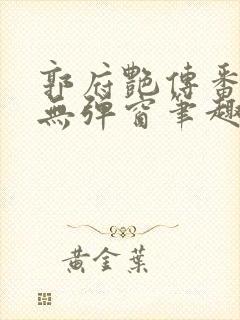 郭府艷傳番
無彈窗筆趣
黃金葉